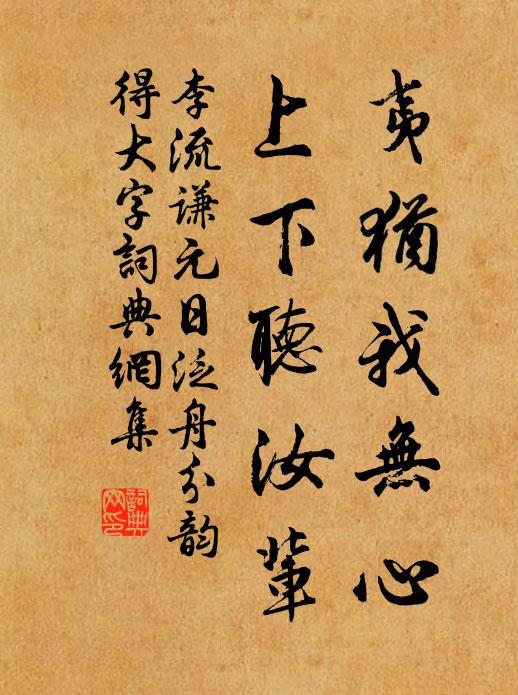 夷猶我無心
上下聽汝輩
李流謙元日泛舟分韵
得大字詞典網集
詞典網印